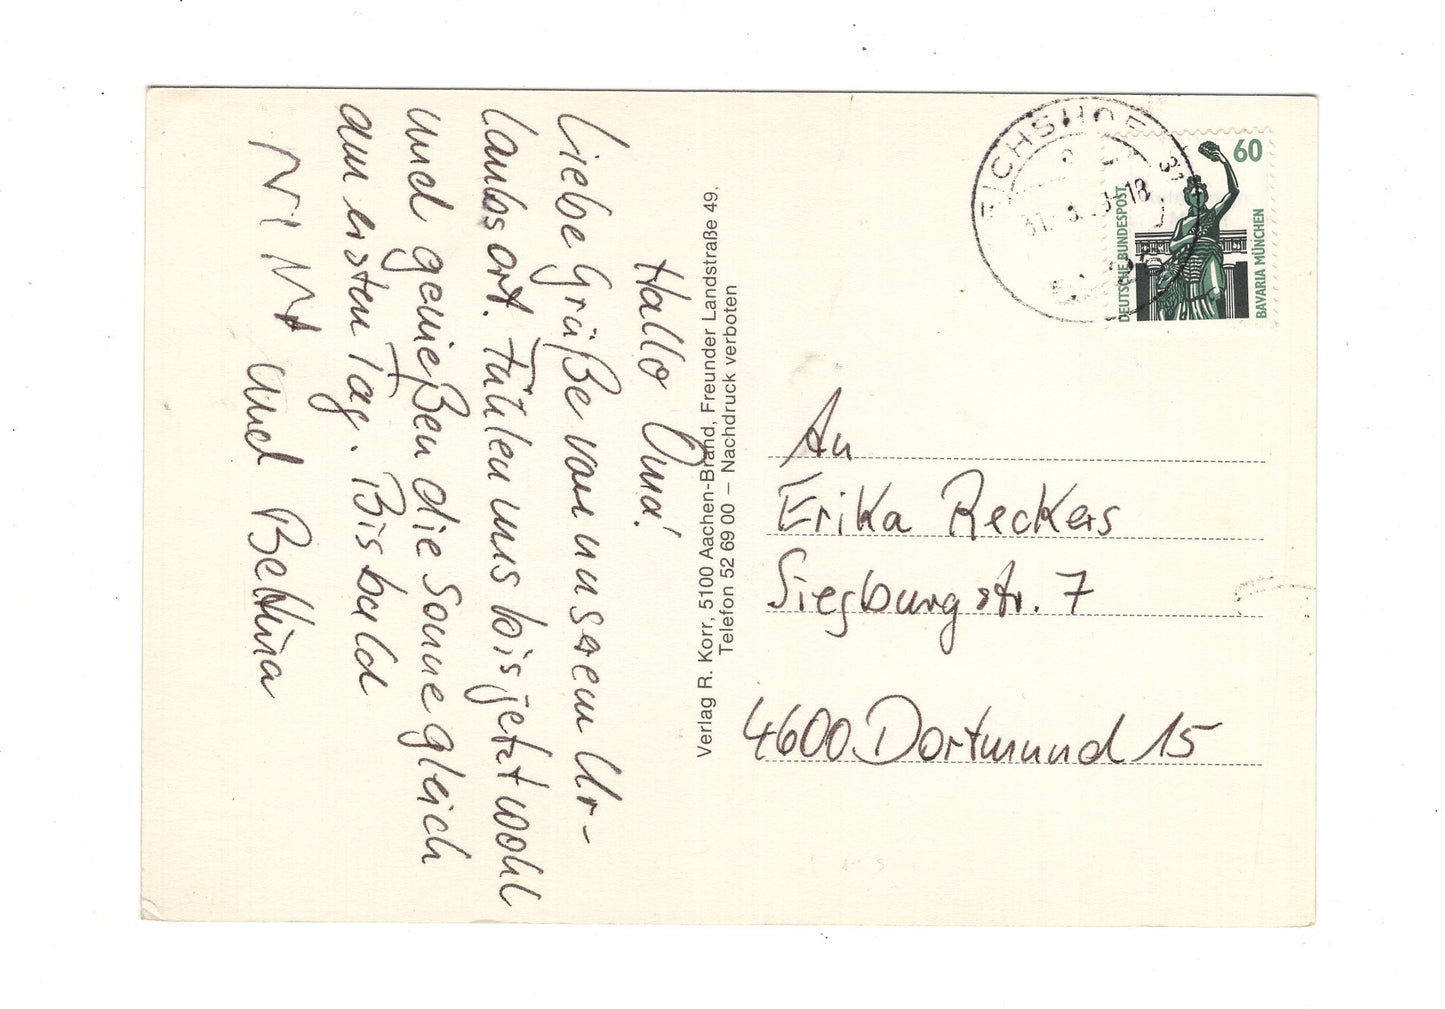 Hallo Oma!
Liebe Grüße von unserem Ur-
laubsort. Fühlen uns bis jetzt wohl
und genießen die Sonne gleich
am ersten Tag. Bis bald
NINA und Bettina
Verlag R. Korr, 5100 Aachen-Brand, Freunder Landstraße 49,
Telefon 52 69 00 – Nachdruck verboten
60
DEUTSCHE BUNDESPOST
BAVARIA MÜNCHEN
An
Erika Reckers
Siegburgstr. 7
4600 Dortmund 15